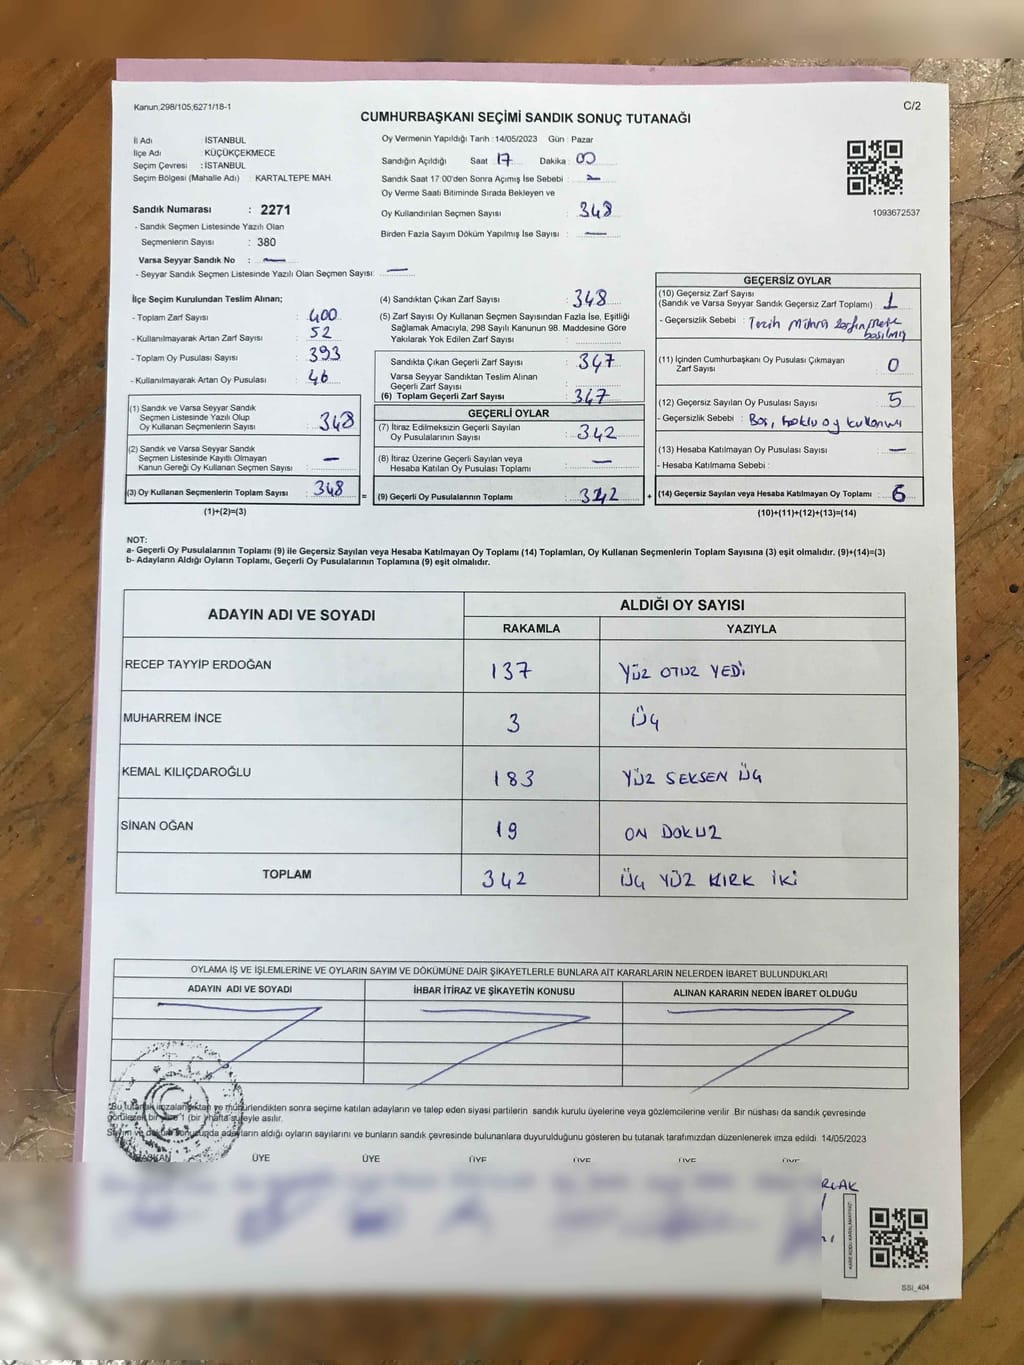 Kanun;298/105;6271/18-1
C/2
CUMHURBAŞKANI SEÇİMİ SANDIK SONUÇ TUTANAĞI
İl Adı : İSTANBUL
İlçe Adı : KÜÇÜKÇEKMECE
Seçim Çevresi : İSTANBUL
Seçim Bölgesi (Mahalle Adı) : KARTALTEPE MAH.
Sandık Numarası : 2271
- Sandık Seçmen Listesinde Yazılı Olan
Seçmenlerin Sayısı : 380
Varsa Seyyar Sandık No : —
- Seyyar Sandık Seçmen Listesinde Yazılı Olan Seçmen Sayısı: —
Oy Vermenin Yapıldığı Tarih :14/05/2023 Gün : Pazar
Sandığın Açıldığı Saat : 17 Dakika : 00
Sandık Saat 17:00'den Sonra Açımış İse Sebebi : —
Oy Verme Saati Bitiminde Sırada Bekleyen ve
Oy Kullandırılan Seçmen Sayısı : 348
Birden Fazla Sayım Döküm Yapılmış İse Sayısı : —
1093672537
İlçe Seçim Kurulundan Teslim Alınan;
- Toplam Zarf Sayısı : 400
- Kullanılmayarak Artan Zarf Sayısı : 52
- Toplam Oy Pusulası Sayısı : 393
- Kullanılmayarak Artan Oy Pusulası : 46
(1) Sandık ve Varsa Seyyar Sandık
Seçmen Listesinde Yazılı Olup
Oy Kullanan Seçmenlerin Sayısı : 348
(2) Sandık ve Varsa Seyyar Sandık
Seçmen Listesinde Kayıtlı Olmayan
Kanun Gereği Oy Kullanan Seçmen Sayısı : —
(3) Oy Kullanan Seçmenlerin Toplam Sayısı : 348
(1)+(2)=(3)
(4) Sandıktan Çıkan Zarf Sayısı : 348
(5) Zarf Sayısı Oy Kullanan Seçmen Sayısından Fazla İse, Eşitliği
Sağlamak Amacıyla, 298 Sayılı Kanunun 98. Maddesine Göre
Yakılarak Yok Edilen Zarf Sayısı :
Sandıkta Çıkan Geçerli Zarf Sayısı : 347
Varsa Seyyar Sandıktan Teslim Alınan
Geçerli Zarf Sayısı :
(6) Toplam Geçerli Zarf Sayısı : 347
GEÇERLİ OYLAR
(7) İtiraz Edilmeksizin Geçerli Sayılan
Oy Pusulalarının Sayısı : 342
(8) İtiraz Üzerine Geçerli Sayılan veya
Hesaba Katılan Oy Pusulası Toplamı : —
= (9) Geçerli Oy Pusulalarının Toplamı : 342
GEÇERSİZ OYLAR
(10) Geçersiz Zarf Sayısı
(Sandık ve Varsa Seyyar Sandık Geçersiz Zarf Toplamı) : 1
- Geçersizlik Sebebi : Tercih Mührü
basılmış
(11) İçinden Cumhurbaşkanı Oy Pusulası Çıkmayan
Zarf Sayısı : 0
(12) Geçersiz Sayılan Oy Pusulası Sayısı : 5
- Geçersizlik Sebebi : Boş, oy
(13) Hesaba Katılmayan Oy Pusulası Sayısı : —
- Hesaba Katılmama Sebebi :
+ (14) Geçersiz Sayılan veya Hesaba Katılmayan Oy Toplamı : 6
(10)+(11)+(12)+(13)=(14)
NOT:
a- Geçerli Oy Pusulalarının Toplamı (9) ile Geçersiz Sayılan veya Hesaba Katılmayan Oy Toplamı (14) Toplamları, Oy Kullanan Seçmenlerin Toplam Sayısına (3) eşit olmalıdır. (9)+(14)=(3)
b- Adayların Aldığı Oyların Toplamı, Geçerli Oy Pusulalarının Toplamına (9) eşit olmalıdır.
ADAYIN ADI VE SOYADI
ALDIĞI OY SAYISI
RAKAMLA YAZIYLA
RECEP TAYYİP ERDOĞAN 137 YÜZ OTUZ YEDİ
MUHARREM İNCE 3 ÜÇ
KEMAL KILIÇDAROĞLU 183 YÜZ SEKSEN ÜÇ
SİNAN OĞAN 19 ON DOKUZ
TOPLAM 342 ÜÇ YÜZ KIRK İKİ
OYLAMA İŞ VE İŞLEMLERİNE VE OYLARIN SAYIM VE DÖKÜMÜNE DAİR ŞİKAYETLERLE BUNLARA AİT KARARLARIN NELERDEN İBARET BULUNDUKLARI
ADAYIN ADI VE SOYADI İHBAR İTİRAZ VE ŞİKAYETİN KONUSU ALINAN KARARIN NEDEN İBARET OLDUĞU
Bu tutanak imzalandıktan ve mühürlendikten sonra seçime katılan adayların ve talep eden siyasi partilerin sandık kurulu üyelerine veya gözlemcilerine verilir .Bir nüshası da sandık çevresinde
görülecek bir yere 1 (bir) hafta süreyle asılır.
Sayım ve döküm sonucunda adayların aldığı oyların sayılarını ve bunların sandık çevresinde bulunanlara duyurulduğunu gösteren bu tutanak tarafımızdan düzenlenerek imza edildi. 14/05/2023
BAŞKAN ÜYE ÜYE ÜYE ÜYE ÜYE ÜYE
SSİ_404